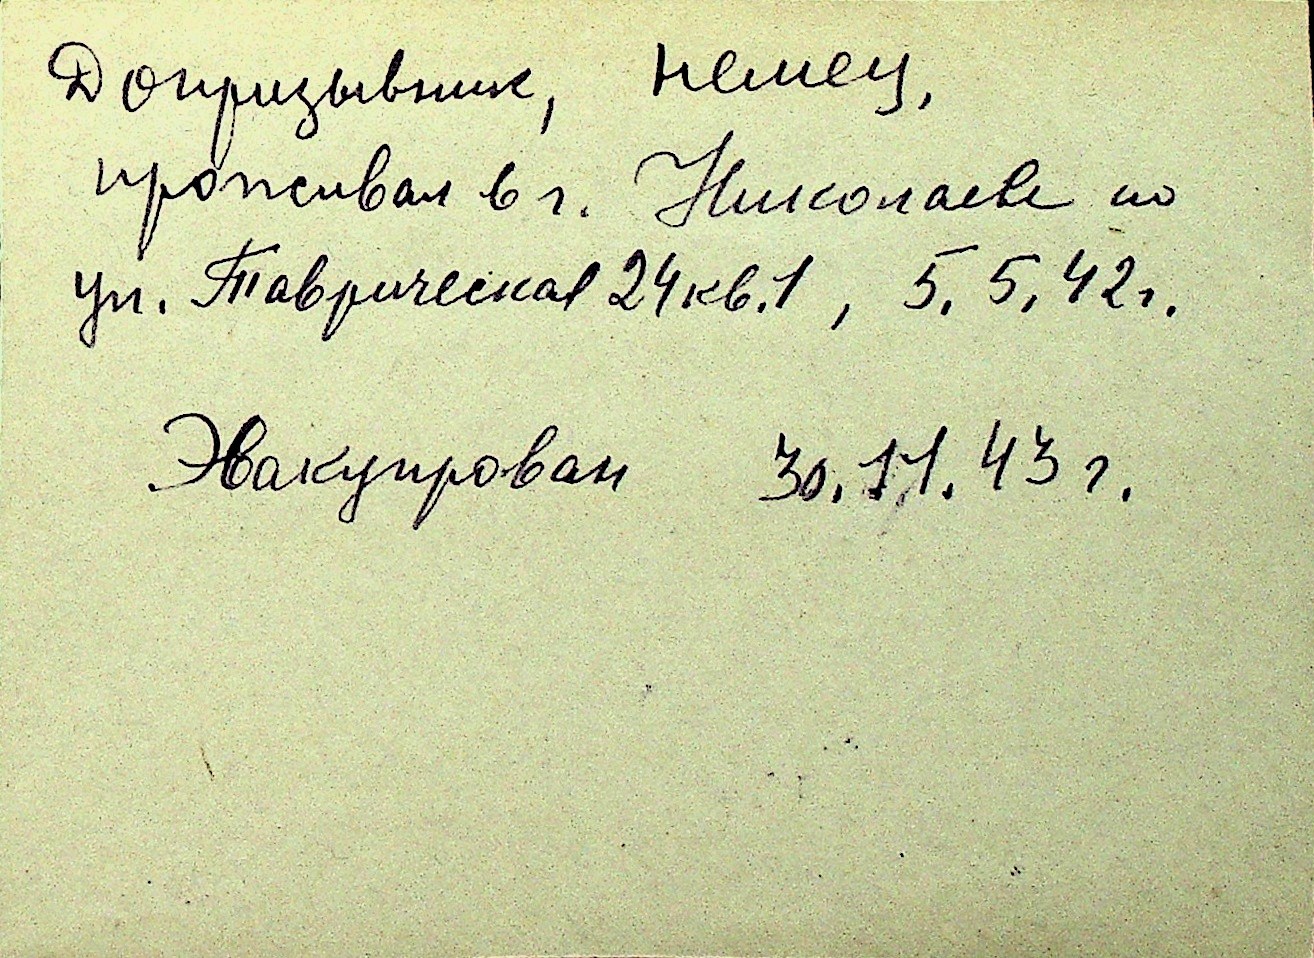 Допризывник, немец,
проживал в г. Николаеве по
ул. Таврическая 24 кв. 1, 5.5.42 г.
Эвакуирован 30.11.43 г.